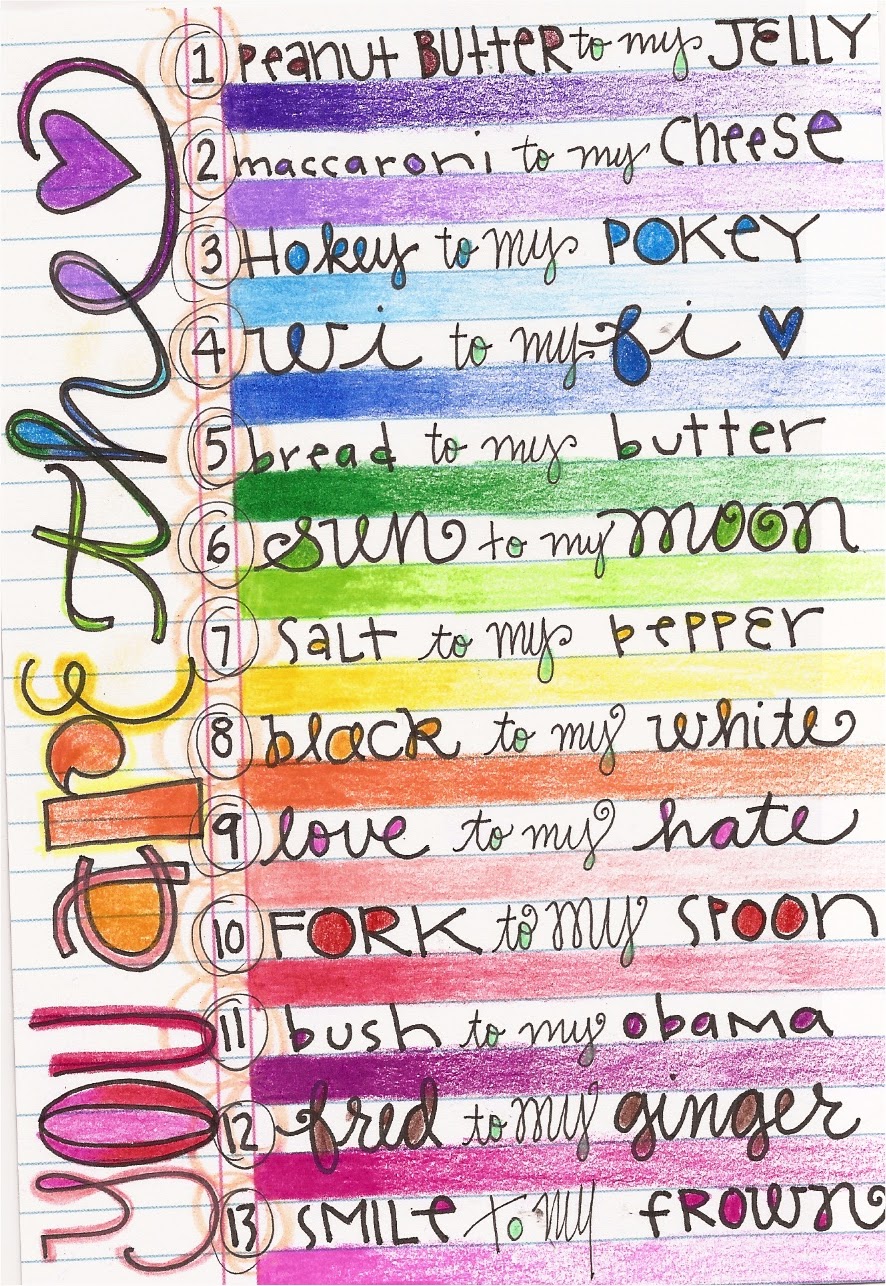 you are the
1 Peanut BUtteR to my JELLY
2 maccaroni to my cheese
3 Hokey to my POKeY
4 wi to my fi
5 bread to my butter
6 sun to my moon
7 salt to my pePPEr
8 black to my white
9 love to my hate
10 FORK to MY SPOON
11 bush to my obama
12 fred to my ginger
13 SMILe to my fROWN